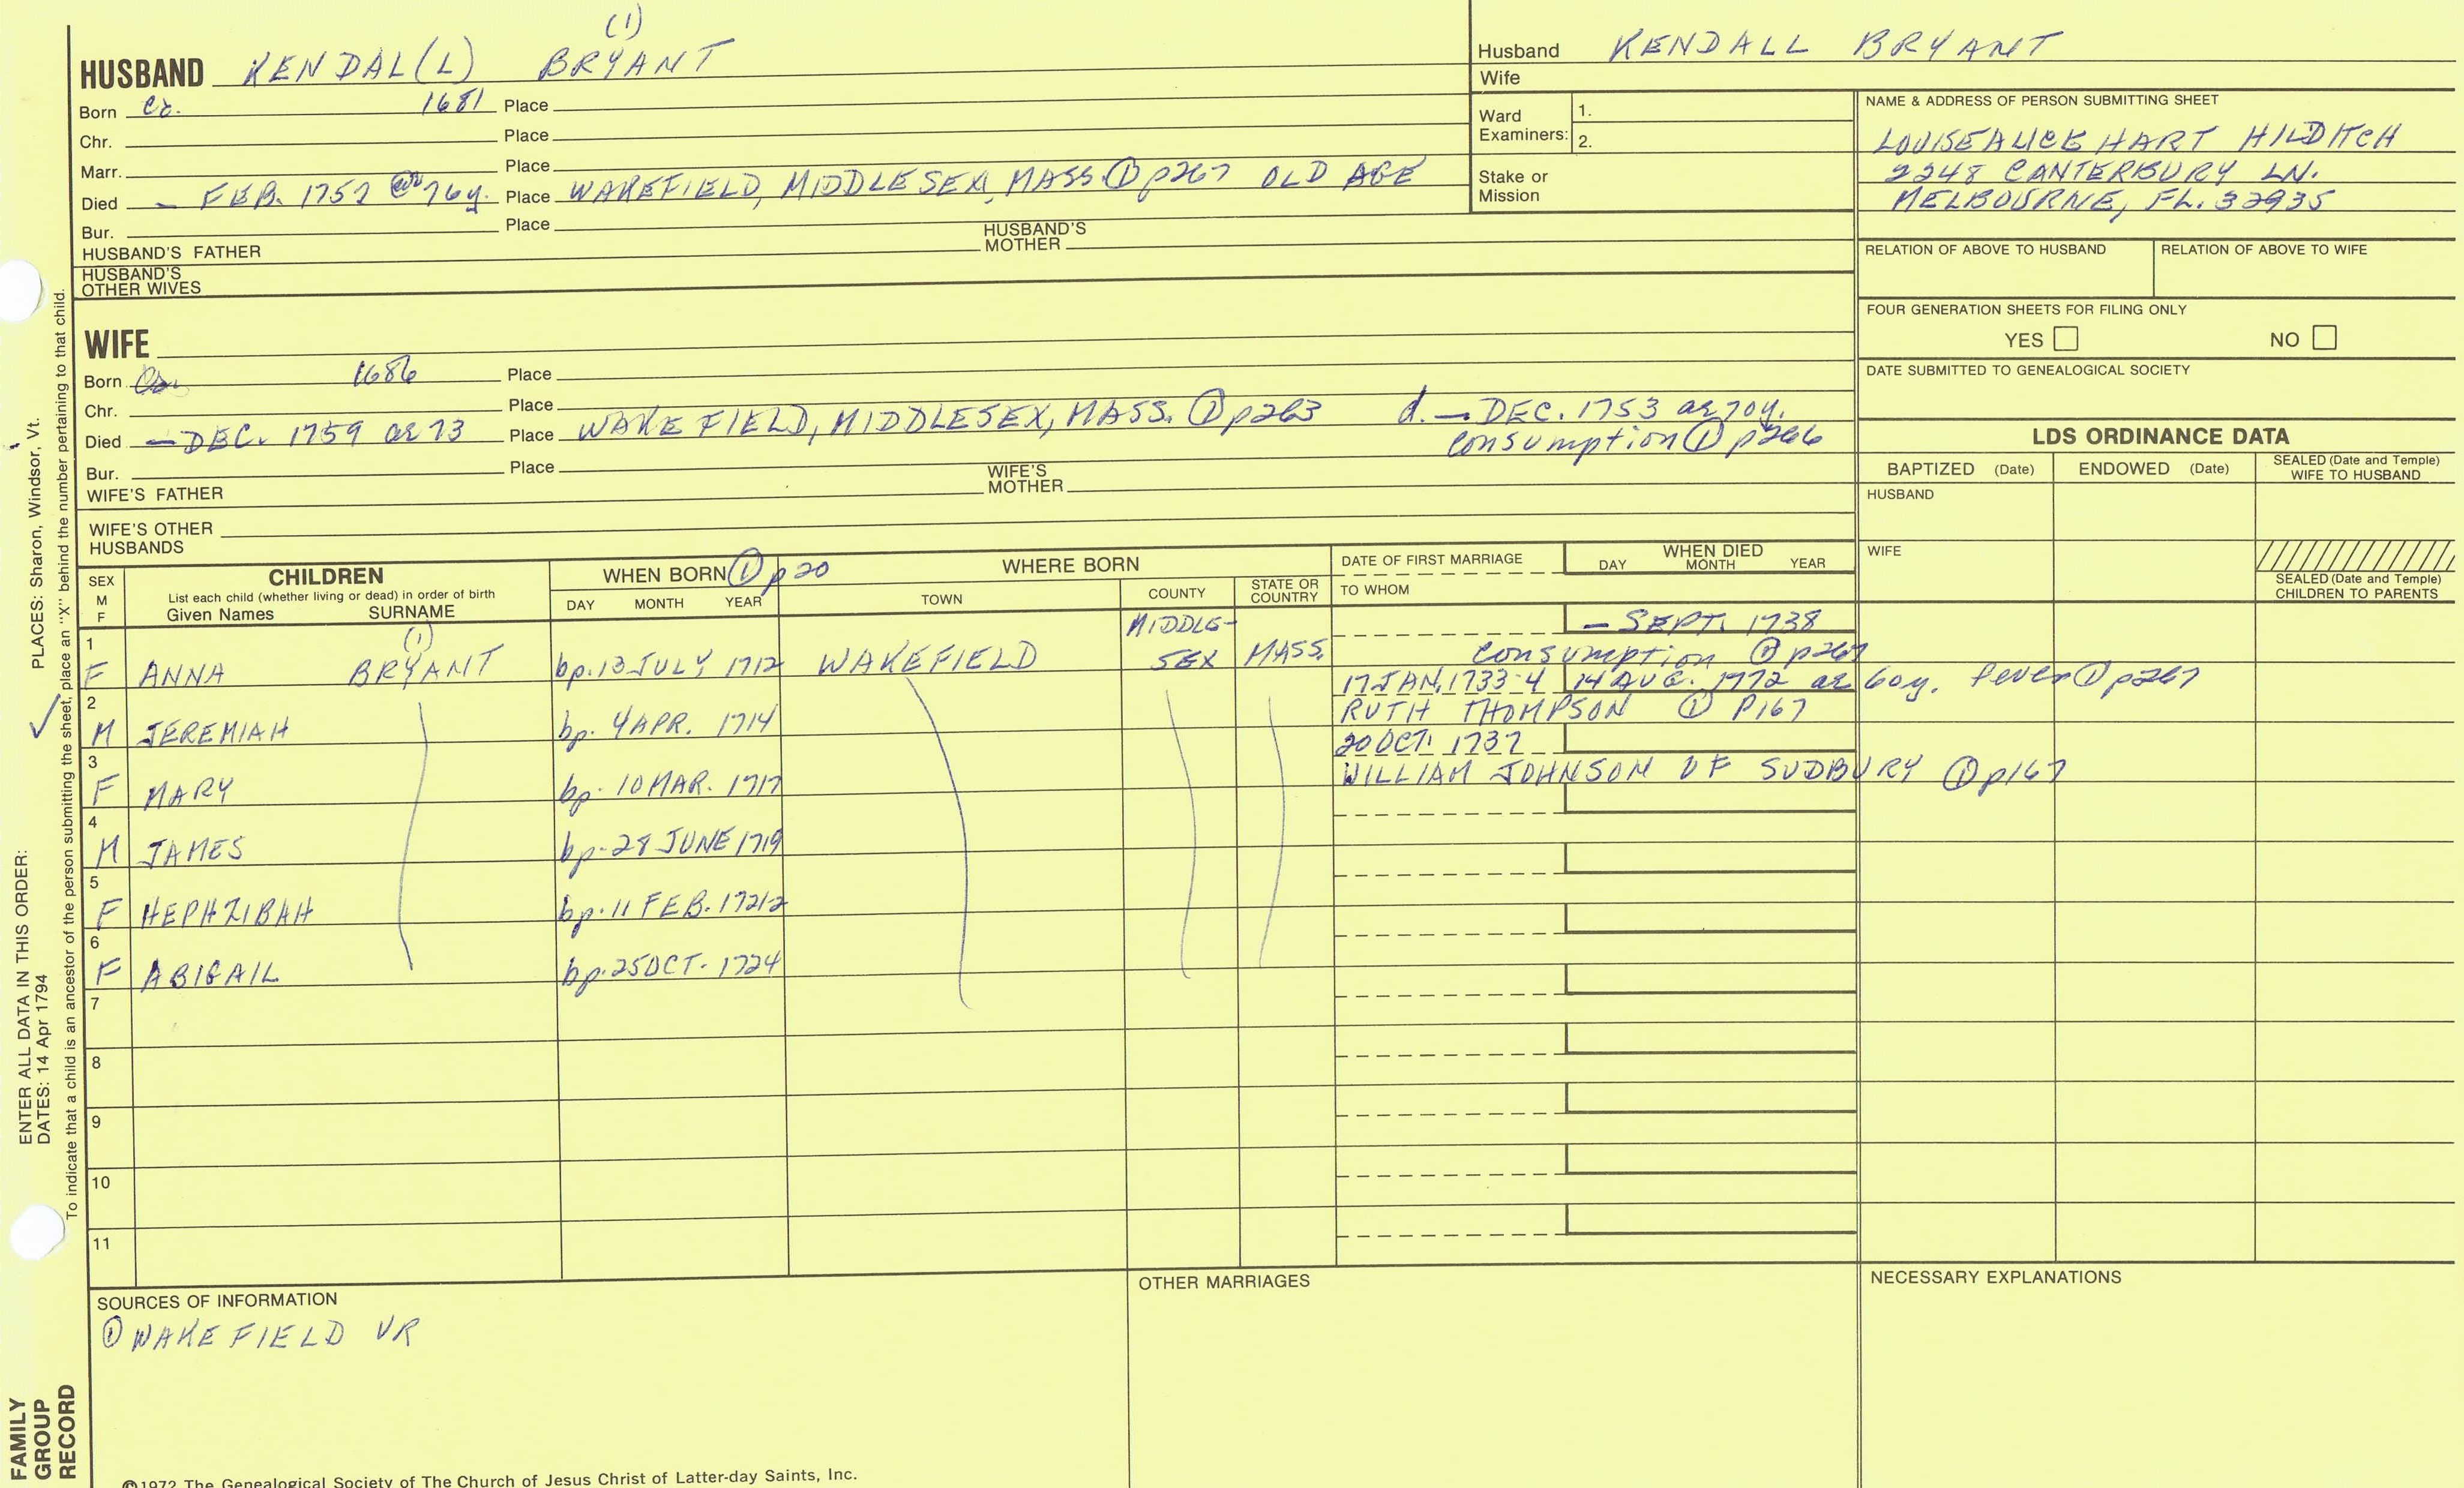 (1)
HUSBAND KENDAL(L) BRYANT
Born ca. 1681 Place
Chr. Place
Marr. Place
Died — FEB. 1757 76y. Place WAKEFIELD, MIDDLESEX, MASS. ① p267 OLD AGE
Bur. Place
HUSBAND'S FATHER HUSBAND'S MOTHER
HUSBAND'S OTHER WIVES
WIFE
Born 1686 Place
Chr. Place
Died — DEC. 1759 ae 73 Place WAKEFIELD, MIDDLESEX, MASS. ① p263 d. — DEC. 1753 ae 70y.
consumption ① p266
Bur. Place
WIFE'S FATHER WIFE'S MOTHER
WIFE'S OTHER HUSBANDS
Husband KENDALL BRYANT
Wife
Ward Examiners: 1.
2.
Stake or Mission
NAME & ADDRESS OF PERSON SUBMITTING SHEET
LOUISE ALICE HART HILDITCH
2248 CANTERBURY LN.
MELBOURNE, FL. 32935
RELATION OF ABOVE TO HUSBAND RELATION OF ABOVE TO WIFE
FOUR GENERATION SHEETS FOR FILING ONLY
YES NO
DATE SUBMITTED TO GENEALOGICAL SOCIETY
LDS ORDINANCE DATA
BAPTIZED (Date) ENDOWED (Date) SEALED (Date and Temple) WIFE TO HUSBAND
HUSBAND
WIFE
SEALED (Date and Temple) CHILDREN TO PARENTS
SEX M F
CHILDREN
List each child (whether living or dead) in order of birth
Given Names SURNAME
WHEN BORN ① p20
DAY MONTH YEAR
WHERE BORN
TOWN COUNTY STATE OR COUNTRY
DATE OF FIRST MARRIAGE
TO WHOM
WHEN DIED
DAY MONTH YEAR
1 (1) MIDDLE- — SEPT. 1738
F ANNA BRYANT bp. 13 JULY 1712 WAKEFIELD SEX MASS. consumption ① p267
2 17 JAN. 1733-4 14 AUG. 1772 ae 60y. fever ① p267
M JEREMIAH bp. 4 APR. 1714 RUTH THOMPSON ① P167
3 20 OCT. 1737
F MARY bp. 10 MAR. 1717 WILLIAM JOHNSON OF SUDBURY ① p167
4
M JAMES bp. 28 JUNE 1719
5
F HEPHZIBAH bp. 11 FEB. 1721/2
6
F ABIGAIL bp. 25 OCT. 1724
7
8
9
10
11
SOURCES OF INFORMATION
① WAKEFIELD VR
OTHER MARRIAGES
NECESSARY EXPLANATIONS
©1972 The Genealogical Society of The Church of Jesus Christ of Latter-day Saints, Inc.
ENTER ALL DATA IN THIS ORDER:
DATES: 14 Apr 1794 PLACES: Sharon, Windsor, Vt.
To indicate that a child is an ancestor of the person submitting the sheet, place an "X" behind the number pertaining to that child.
FAMILY GROUP RECORD